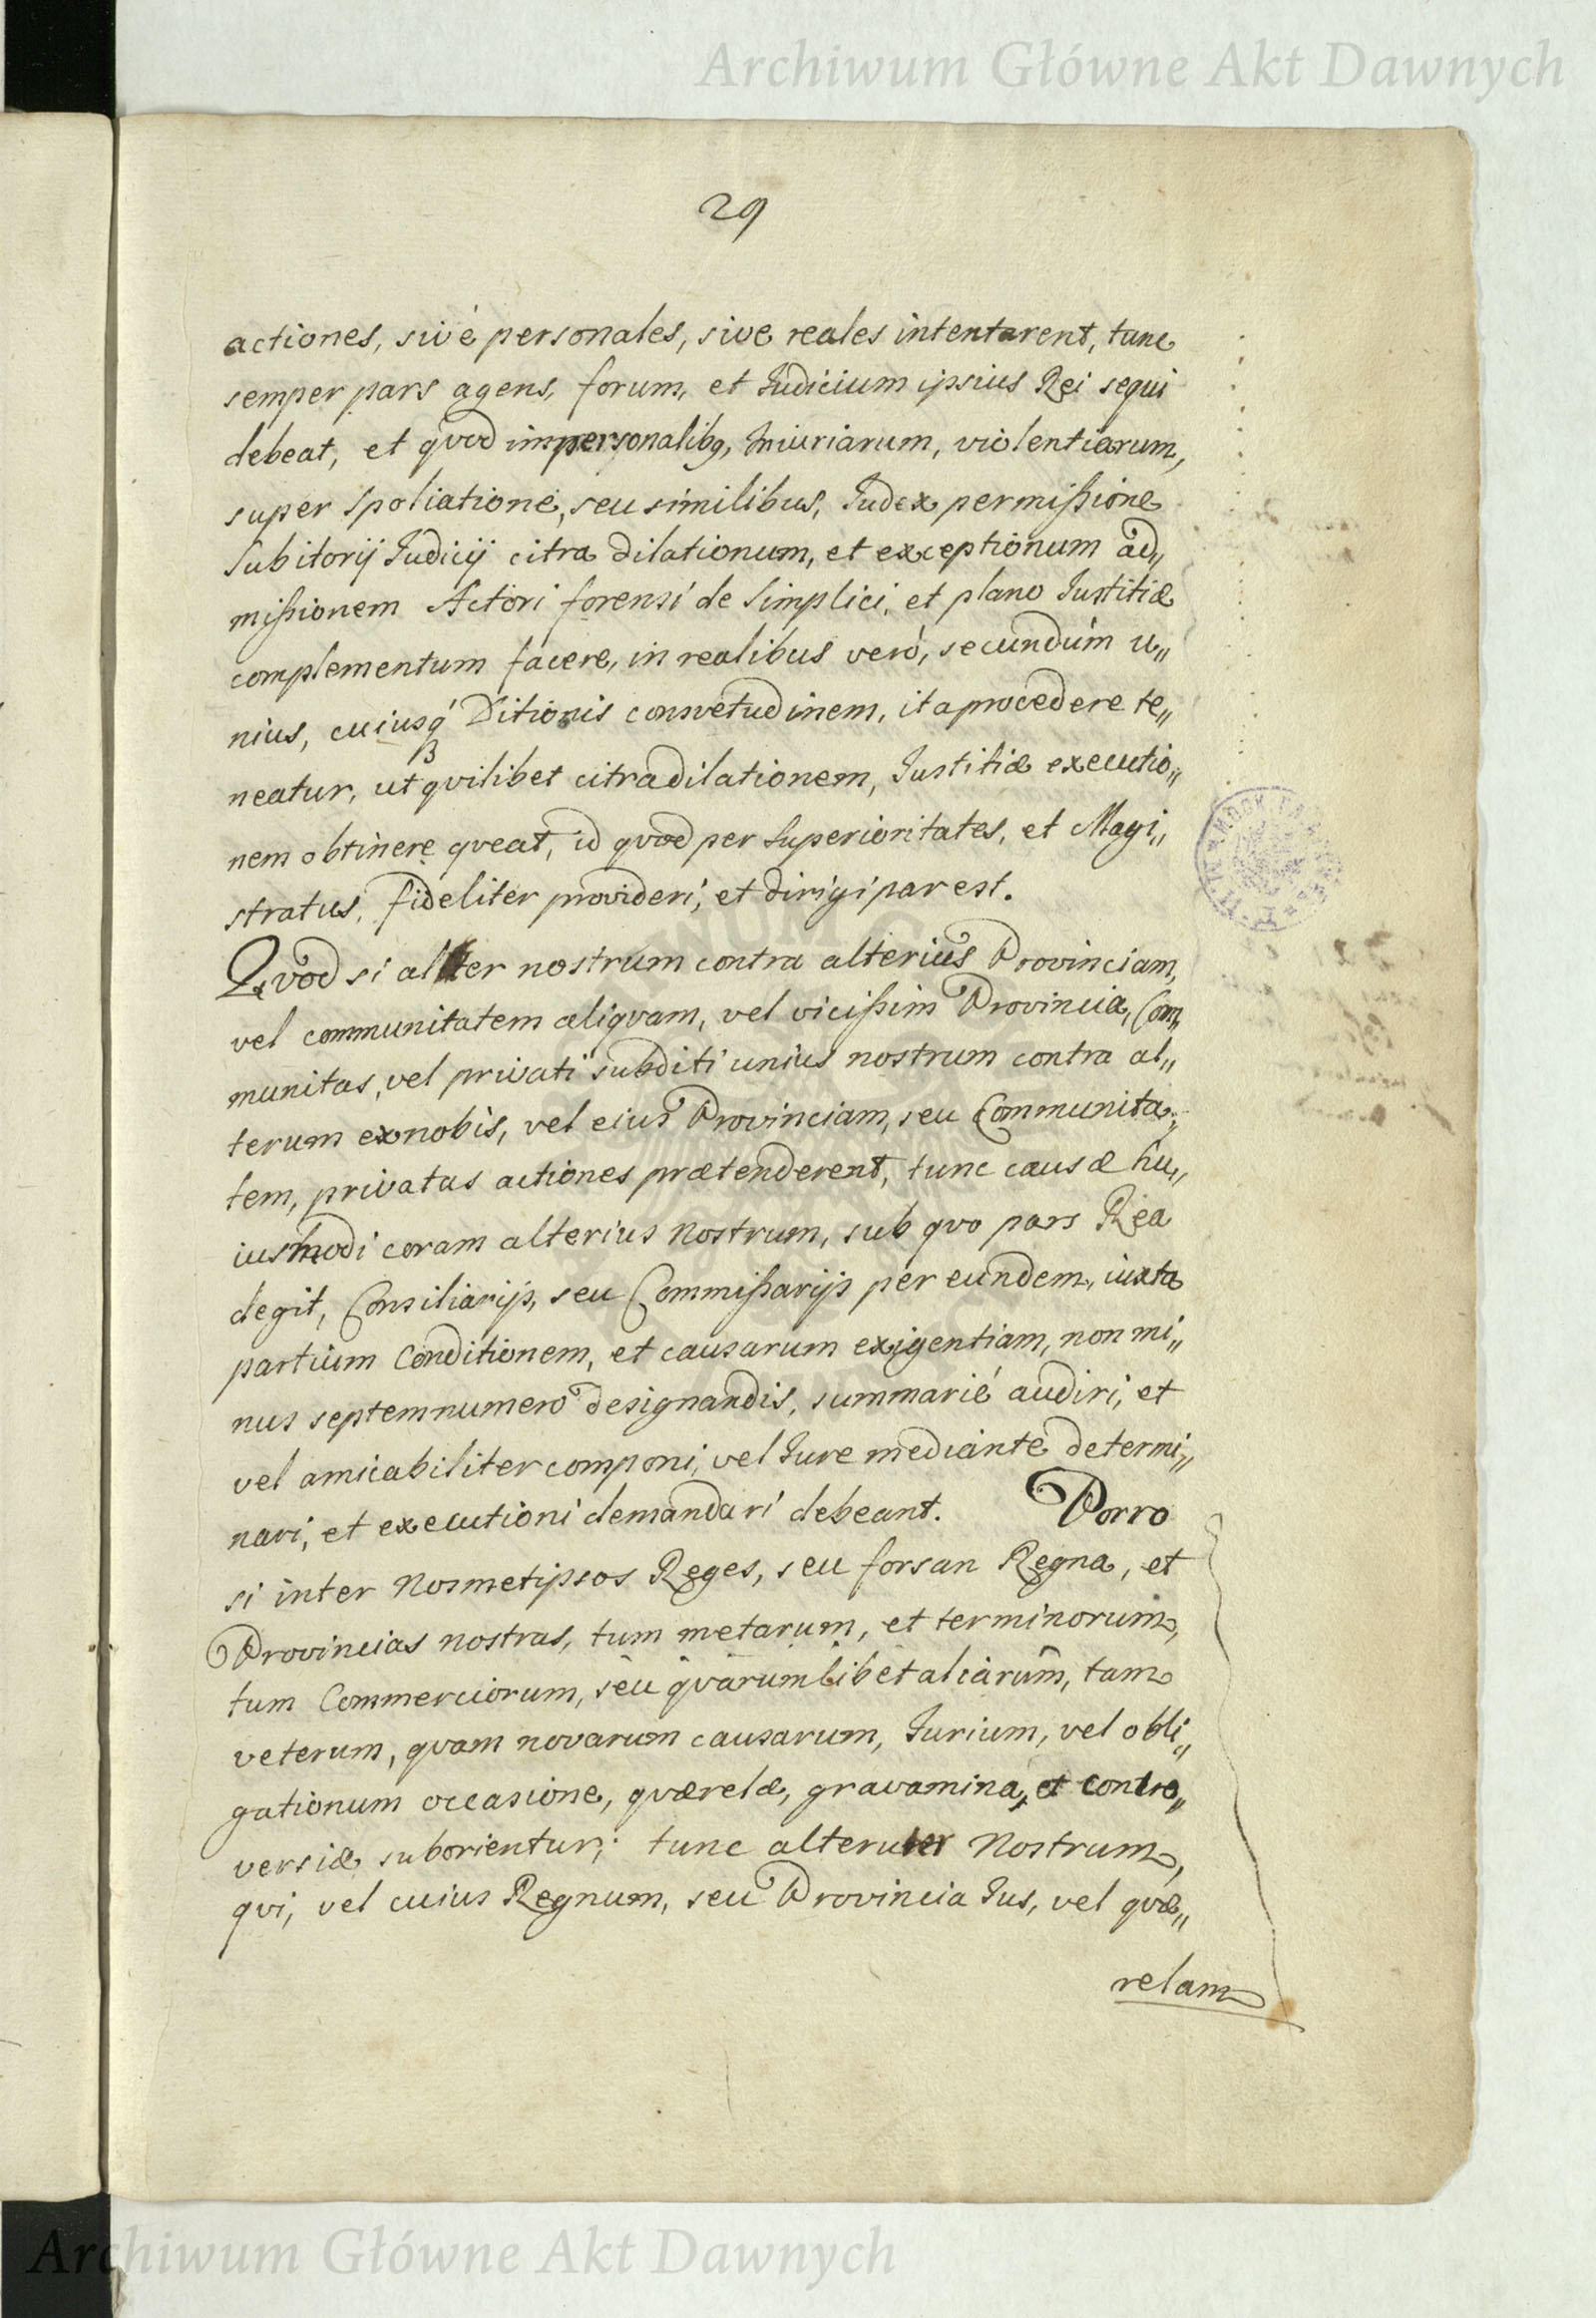 Archiwum Główne Akt Dawnych
29
actiones, sivè personales, sive reales intentarent, tunc
semper pars agens, forum, et Iudicium ipsius Rei sequi
debeat, et qvod in personalibq, Iniuriarum, violentiarum,
super Spoliatione, seu similibus, Iudex permißione
Subitorij Iudicij citra dilationum, et exceptionum ad„
mißionem Actori forensi de Simplici, et plano Iustitiæ
complementum facere, in realibus verò, secundùm u„
nius, cuiusq́ Ditionis consvetudinem, ita procedere te„
neatur, ut qvilibet citra dilationem, Iustitiæ executio„
nem obtinere qveat, id qvod per Superioritates, et Magi„
stratus, fideliter provideri, et dirigi par est.
Qvod si alter nostrum contra alterius Provinciam,
vel communitatem aliqvam, vel vicißim Provincia, Com„
munitas, vel privati subditi unius nostrum contra al„
terum ex nobis, vel eius Provinciam, seu Communita„
tem, privatas actiones prætenderent, tunc causæ hu„
iusmodi coram alterius nostrum, sub qvo pars Rea
degit, Consiliarijs, seu Commißarijs per eundem, iuxta
partium Conditionem, et causarum exigentiam, non mi„
nus septem numero designandis, summariè audiri, et
vel amicabiliter componi, vel Iure mediante determi„
nari, et executioni demandari debeant. Porro
si inter Nosmetipsos Reges, seu forsan Regna, et
Provincias nostras, tum metarum, et terminorum,
tum Commerciorum, seu qvarumlibet aliarum, tam
veterum, qvam novarum causarum, Iurium, vel obli„
gationum occasione, qværelæ, gravamina, et contro„
versiæ suborientur; tunc alteruter Nostrum,
qvi, vel cuius Regnum, seu Provincia Ius, vel qvæ„
relam
Archiwum Główne Akt Dawnych